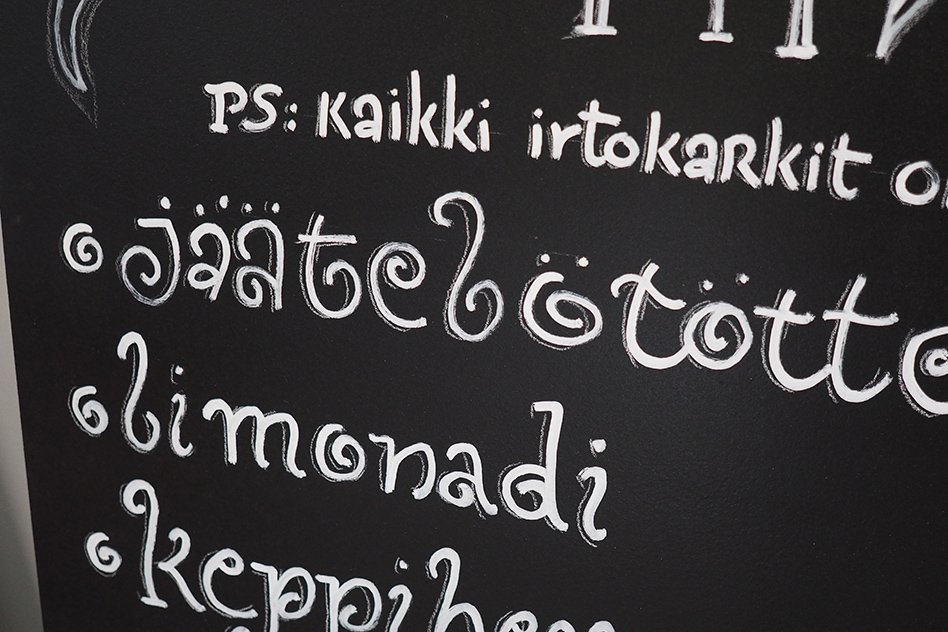 PS: Kaikki irtokarkit
• jäätelötötte
• limonadi
• keppihev